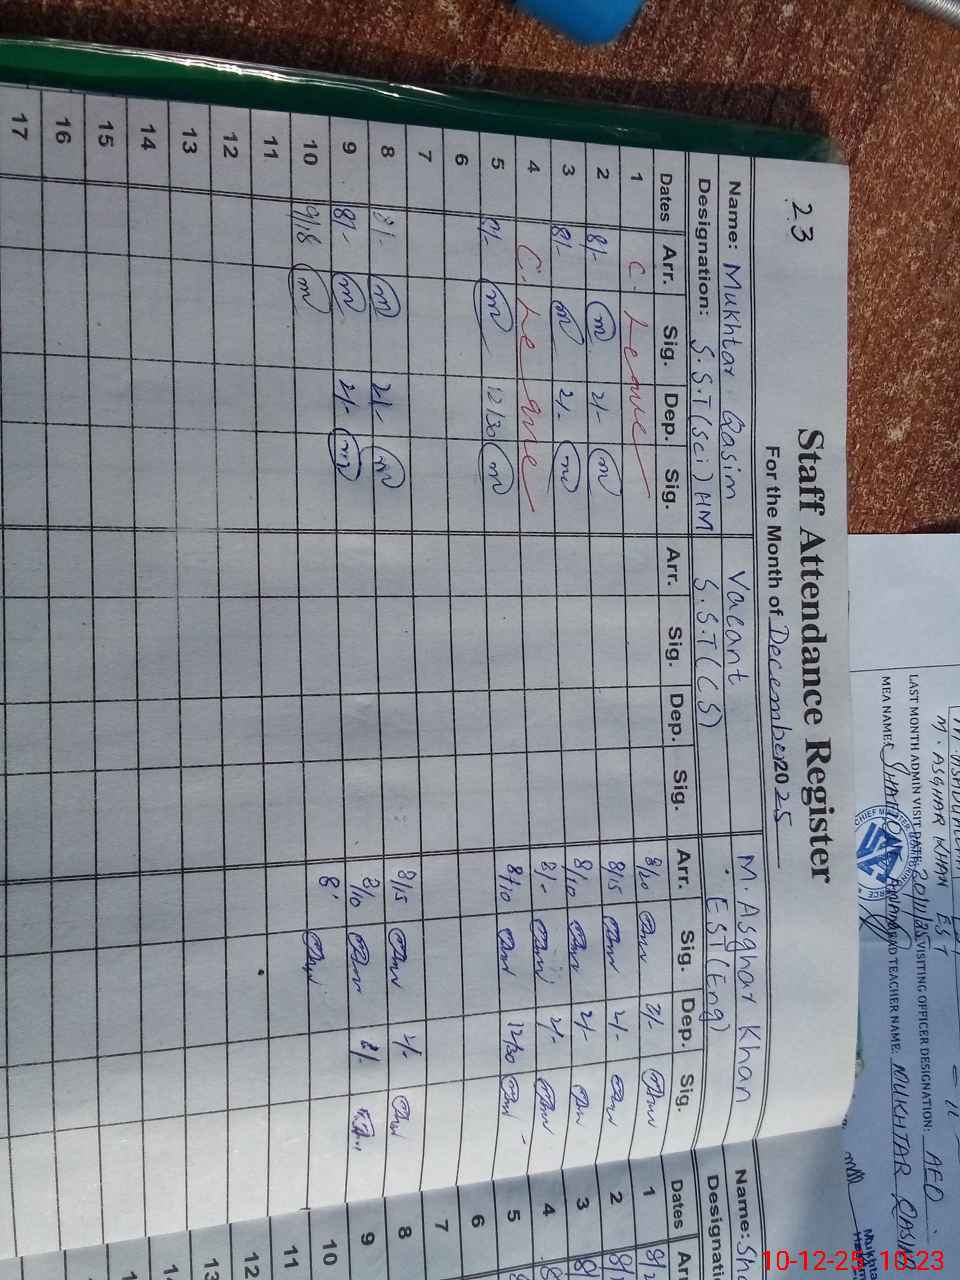 23
Staff Attendance Register
For the Month of December 2025
Name: Mukhtar Qasim Vacant M. Asghar Khan
Designation: S.S.T (Sci) HM S.S.T (CS) EST (Eng)
Dates Arr. Sig. Dep. Sig. Arr. Sig. Dep. Sig. Arr. Sig. Dep. Sig.
1 C. Leave 8/20 2/-
2 8/- 2/- 8/15 2/-
3 8/- 2/- 8/10 2/-
4 C. Leave 8/- 2/-
5 8/- 12/30 8/10 12/30
6
7
8 8/- 2/- 8/15 2/-
9 8/- 2/- 8/10 2/-
10 9/18 8
11
12
13
14
15
16
17
Name: Sha
Designati
Dates Arr
1
2
3
4
5
6
7
8
9
10
11
12
13
M. ASGHAR KHAN EST
LAST MONTH ADMIN VISIT DATE: 20/11/25 VISITING OFFICER DESIGNATION: AEO
MEA NAME: HEAD TEACHER NAME: MUKHTAR QASIM
CHIEF MINISTER
10-12-25 10:23